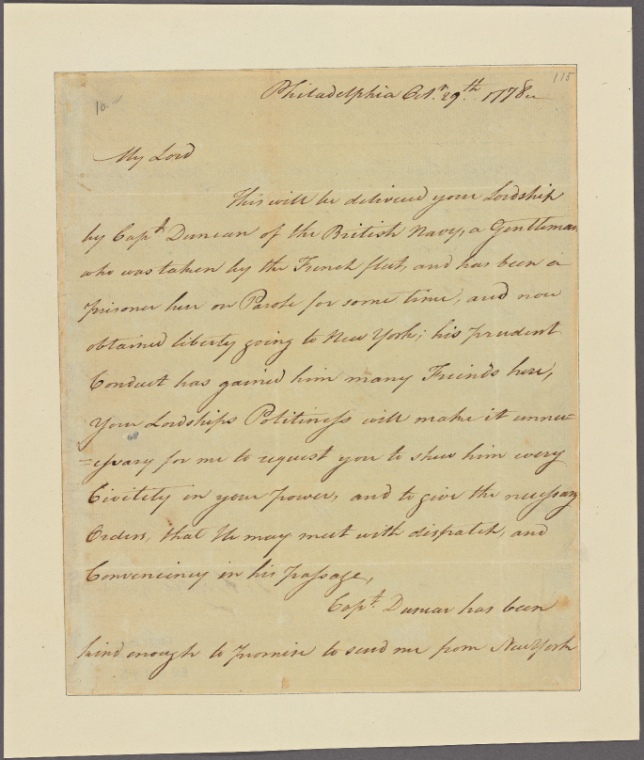 115
10.
Philadelphia Octr. 29th. 1778
My Lord
This will be delivered your Lordship
by Capt. Duncan of the British Navy, a Gentleman
who was taken by the French fleet, and has been a
prisoner here on Parole for some time, and now
obtained liberty going to New York; his prudent
Conduct has gained him many Freinds here,
Your Lordships Politiness will make it unne=
=cessary for me to request you to shew him every
Civility in your power, and to give the necessary
Orders, that He may meet with dispatch, and
Conveniency in his Passage,
Capt. Duncan has been
kind enough to Promise to send me from New York